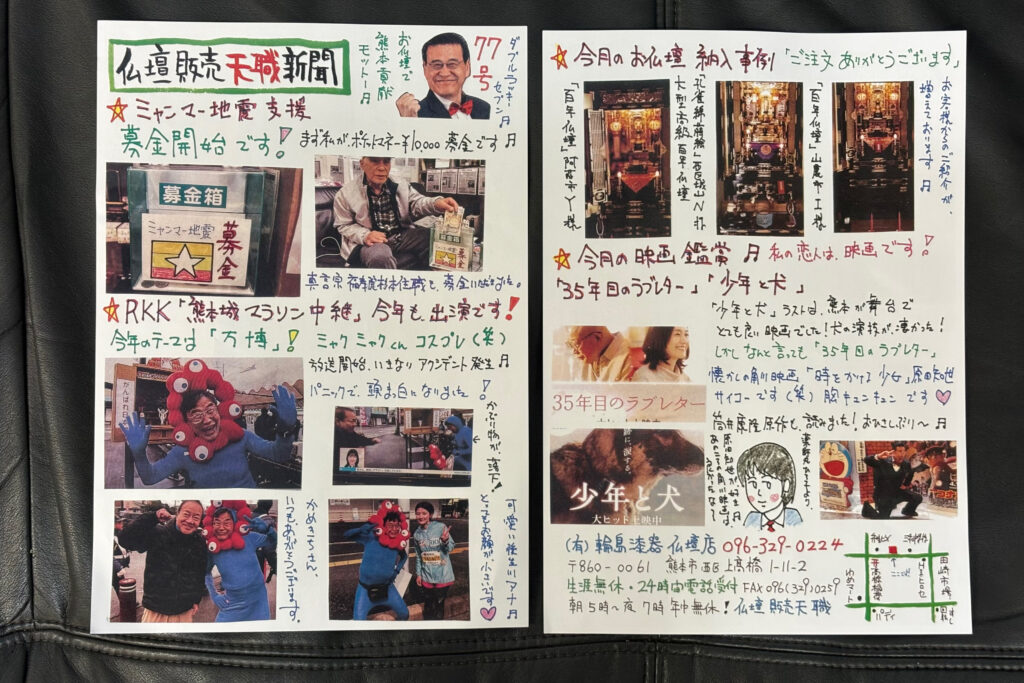 仏壇販売天職新聞
お仏壇で
熊本貢献
モットー♬
77号
ダブルラッキーセブン♬
☆ミャンマー地震支援
募金開始です!
まず私がポケットマネー¥10,000募金です♬
募金箱
ミャンマー地震
募金
募金箱
☆RKK「熊本城マラソン中継」今年も、出演です!
今年のテーマは「万博」! ミャクミャクくん コスプレ(笑)
放送開始、いきなり アクシデント発生♬
パニックで、頭ま白になりました!
かぶり物が、落下!
がんばれ日
かめきちさん、
いつも、ありがとうございます。
可愛い 後生川アナ♬
とってもお顔が、小さいです。
☆今月のお仏壇 納入事例 「ご注文ありがとうございます」
「百年仏壇」阿蘇市Y様
大型高級百年仏壇
「百年仏壇」山鹿市I様
お客様からのご紹介が、
増えております♬
☆今月の映画鑑賞♬ 私の恋人は、映画です!
「35年目のラブレター」「少年と犬」
「少年と犬」ラストは、熊本が舞台で
とても良い映画でした!犬の演技が、凄かった!
しかし なんと言っても「35年目のラブレター」
懐かしの角川映画「時をかける少女」原田知世
サイコーです(笑)胸キュンキュンです
筒井康隆原作も、読みました!おひさしぶり〜♬
35年目のラブレター
大ヒット上映中
少年と犬
大ヒット上映中
(有)輪島漆器仏壇店 096-329-0224
〒860-0061 熊本市西区上高橋1-11-2
生涯無休・24時間電話受付 FAX096(329)0259
朝5時〜夜7時 年中無休!仏壇販売天職
田崎市場
ゆめマート